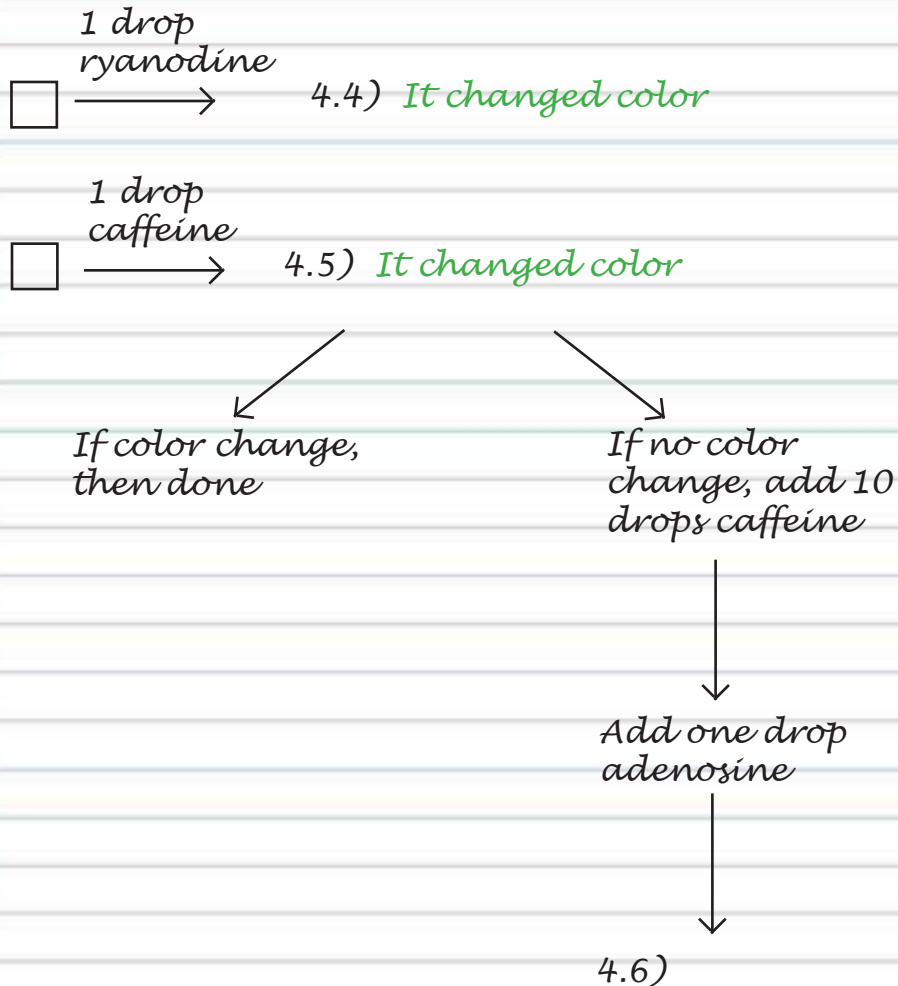 1 drop
ryanodine
4.4) It changed color
1 drop
caffeine
4.5) It changed color
If color change,
then done
If no color
change, add 10
drops caffeine
Add one drop
adenosine
4.6)